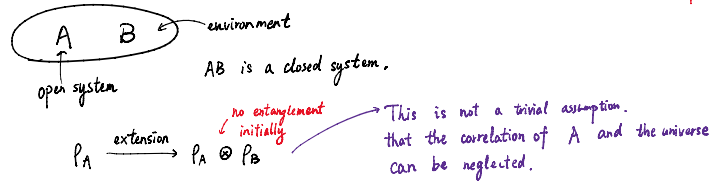 environment
A B
open system
AB is a closed system.
no entanglement
initially
ρ_A extension → ρ_A ⊗ ρ_B
This is not a trivial assumption.
that the correlation of A and the universe
can be neglected.